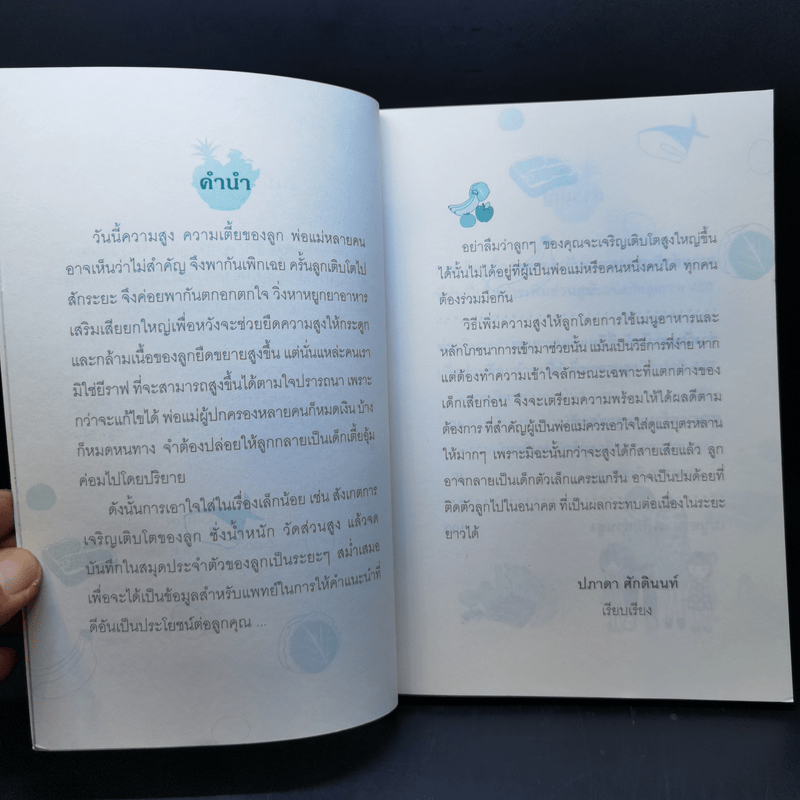 คำนำ
วันนี้ความสูง ความเตี้ยของลูก พ่อแม่หลายคน
อาจเห็นว่าไม่สำคัญ จึงพากันเพิกเฉย ครั้นลูกเติบโตไป
สักระยะ จึงค่อยพากันตกอกตกใจ วิ่งหาหยูกยาอาหาร
เสริมเสียยกใหญ่เพื่อหวังจะช่วยยืดความสูงให้กระดูก
และกล้ามเนื้อของลูกยืดขยายสูงขึ้น แต่นั่นแหล่ะคนเรา
มิใช่ยีราฟ ที่จะสามารถสูงขึ้นได้ตามใจปรารถนา เพราะ
กว่าจะแก้ไขได้ พ่อแม่ผู้ปกครองหลายคนก็หมดเงิน บ้าง
ก็หมดหนทาง จำต้องปล่อยให้ลูกกลายเป็นเด็กเตี้ยอุ้ม
ค่อมไปโดยปริยาย
ดังนั้นการเอาใจใส่ในเรื่องเล็กน้อย เช่น สังเกตการ
เจริญเติบโตของลูก ชั่งน้ำหนัก วัดส่วนสูง แล้วจด
บันทึกในสมุดประจำตัวของลูกเป็นระยะๆ สม่ำเสมอ
เพื่อจะได้เป็นข้อมูลสำหรับแพทย์ในการให้คำแนะนำที่
ดีอันเป็นประโยชน์ต่อลูกคุณ ...
อย่าลืมว่าลูกๆ ของคุณจะเจริญเติบโตสูงใหญ่ขึ้น
ได้นั้นไม่ได้อยู่ที่ผู้เป็นพ่อแม่หรือคนหนึ่งคนใด ทุกคน
ต้องร่วมมือกัน
วิธีเพิ่มความสูงให้ลูกโดยการใช้เมนูอาหารและ
หลักโภชนาการเข้ามาช่วยนั้น แม้นเป็นวิธีการที่ง่าย หาก
แต่ต้องทำความเข้าใจลักษณะเฉพาะที่แตกต่างของ
เด็กเสียก่อน จึงจะเตรียมความพร้อมให้ได้ผลดีตาม
ต้องการ ที่สำคัญผู้เป็นพ่อแม่ควรเอาใจใส่ดูแลบุตรหลาน
ให้มากๆ เพราะมิฉะนั้นกว่าจะสูงได้ก็สายเสียแล้ว ลูก
อาจกลายเป็นเด็กตัวเล็กแคระแกร็น อาจเป็นปมด้อยที่
ติดตัวลูกไปในอนาคต ที่เป็นผลกระทบต่อเนื่องในระยะ
ยาวได้
ปภาดา ศักดินนท์
เรียบเรียง